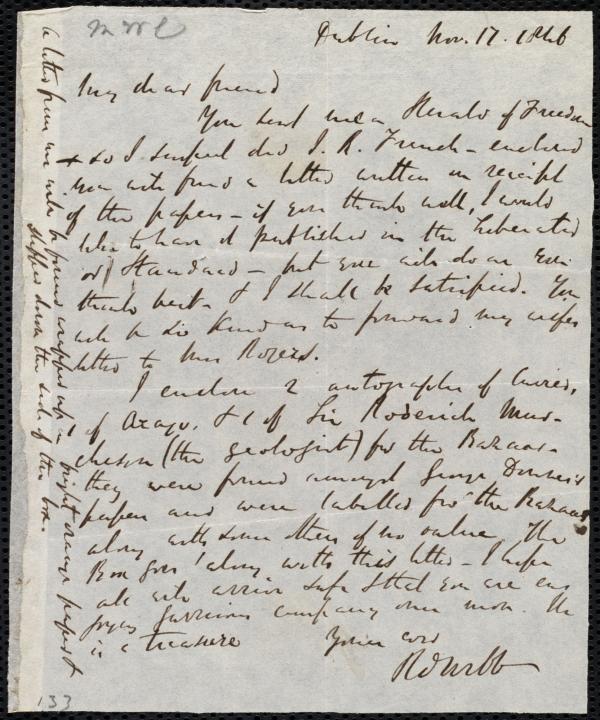 Dublin Nov. 17. 1846
My dear friend
You send me a Herald of Freedom
& so I suspect did J. R. French - enclosed
you will find a letter written on receipt
of the papers - if you think well, I would
like to have it published in the Liberator
or Standard - but you will do as you
think best - & I shall be satisfied. You
will be so kind as to forward my wife's
letter to Mrs Rogers.
I enclose 2 autographs of Cuvier,
1 of Arago, & 1 of Sir Roderick Mur-
chison (the geologist) for the Bazaar -
they were found amongst George Downes's
papers and were labelled for the Bazaar
along with some others of no value. The
Box goes along with this letter - I hope
all will arrive safe & that you are en
joying Garrison's company once more. He
is a treasure
Yours
RDWebb
a letter from me will be found wrapped up in bright orange paper &
slipped down the side of the box.
133